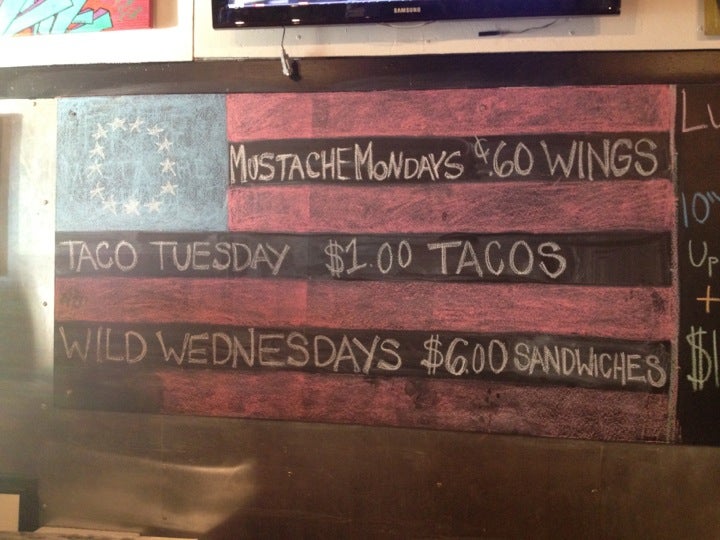 SAMSUNG
MUSTACHE MONDAYS ¢.60 WINGS
TACO TUESDAY $1.00 TACOS
WILD WEDNESDAYS $6.00 SANDWICHES
10"
UP
+